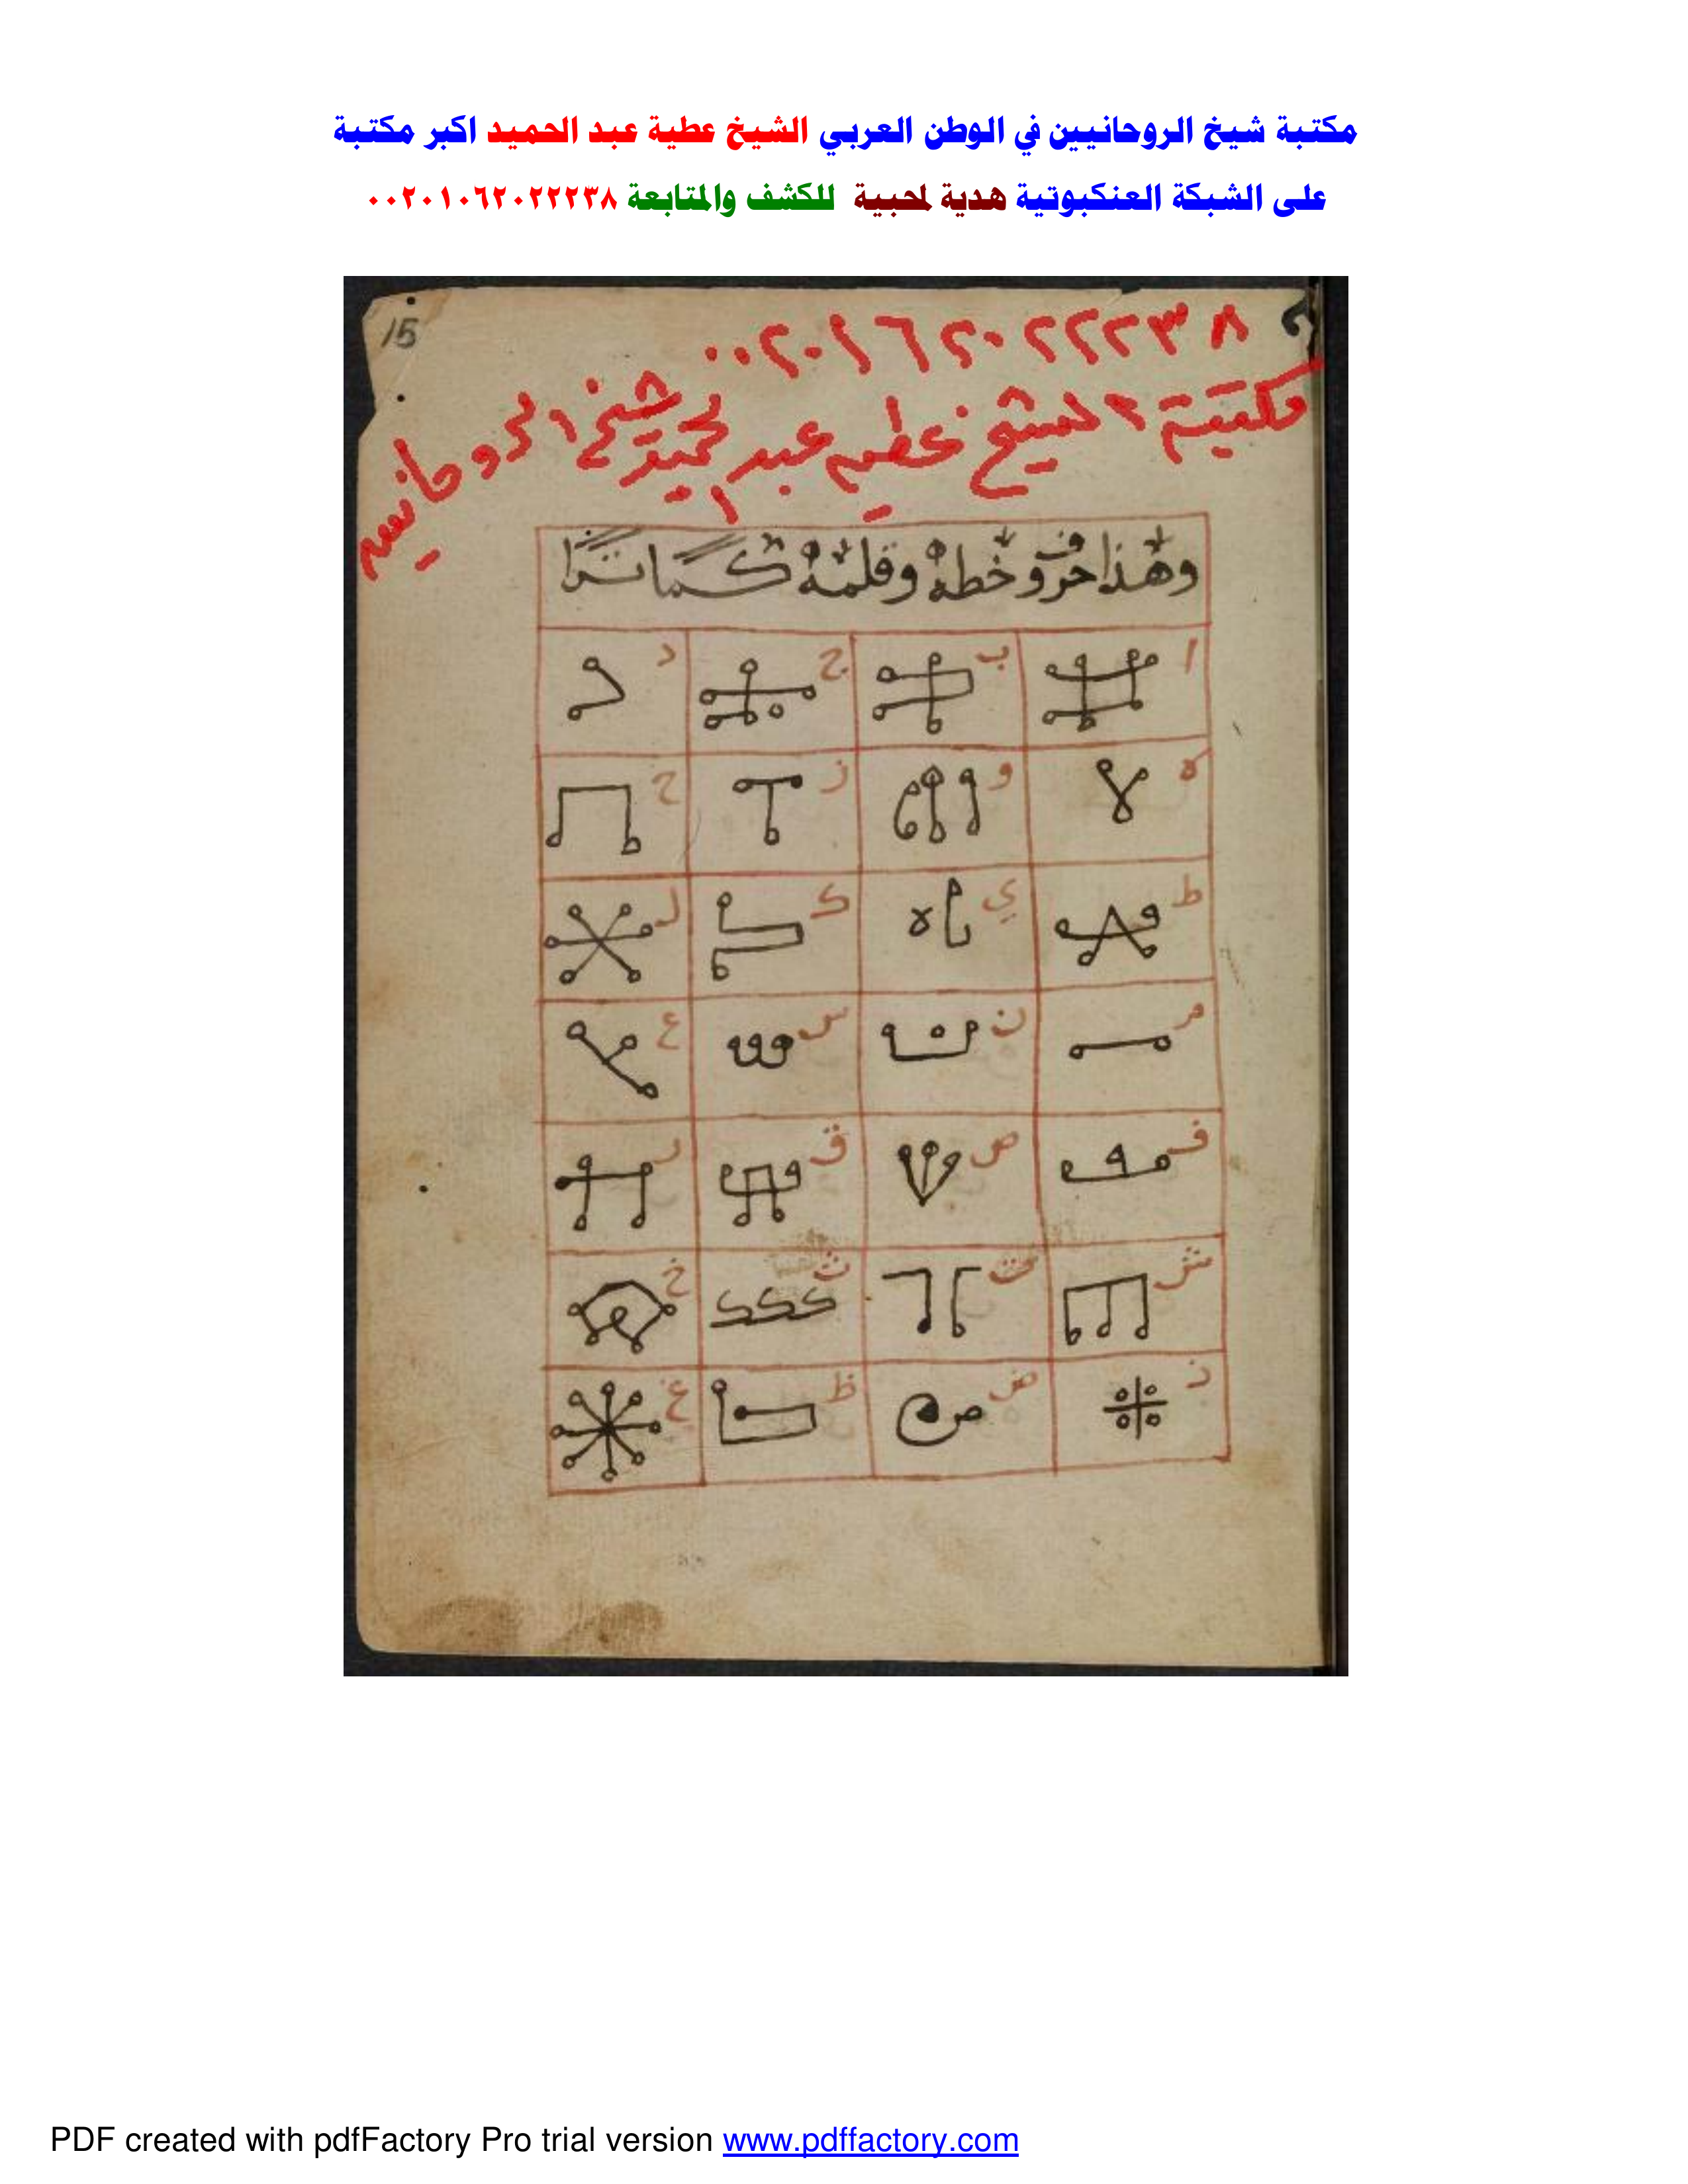 مكتبة شيخ الروحانيين في الوطن العربي الشيخ عطية عبد الحميد اكبر مكتبة
على الشبكة العنكبوتية هدية لمحبية للكشف والمتابعة ٠٠٢٠١٠٦٢٠٢٢٢٣٨
15
٠٠٢٠١٦٢٠٢٢٢٣٨
مكتبة الشيخ عطيه عبد الحميد شيخ الروحانيين
وهذا حروف خطه وقلمه كما ترا
ا ب ج د
ه و ز ح
ط ي ك ل
م ن س ع
ف ص ق ر
ش ت ث خ
ذ ض ظ غ
PDF created with pdfFactory Pro trial version www.pdffactory.com